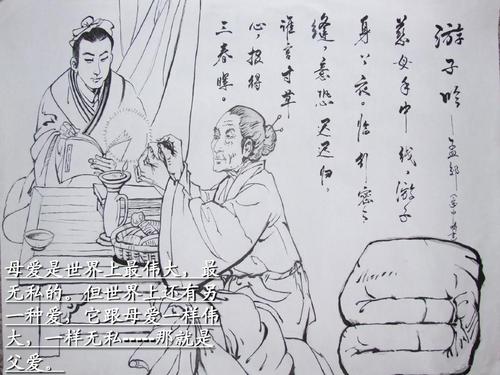 游子吟——孟郊
慈母手中线，游子
身上衣。临行密々
缝，意恐迟迟归。
谁言寸草
心，报得
三春晖。
母爱是世界上最伟大，最
无私的。但世界上还有另
一种爱，它跟母爱一样伟
大，一样无私-----那就是
父爱。